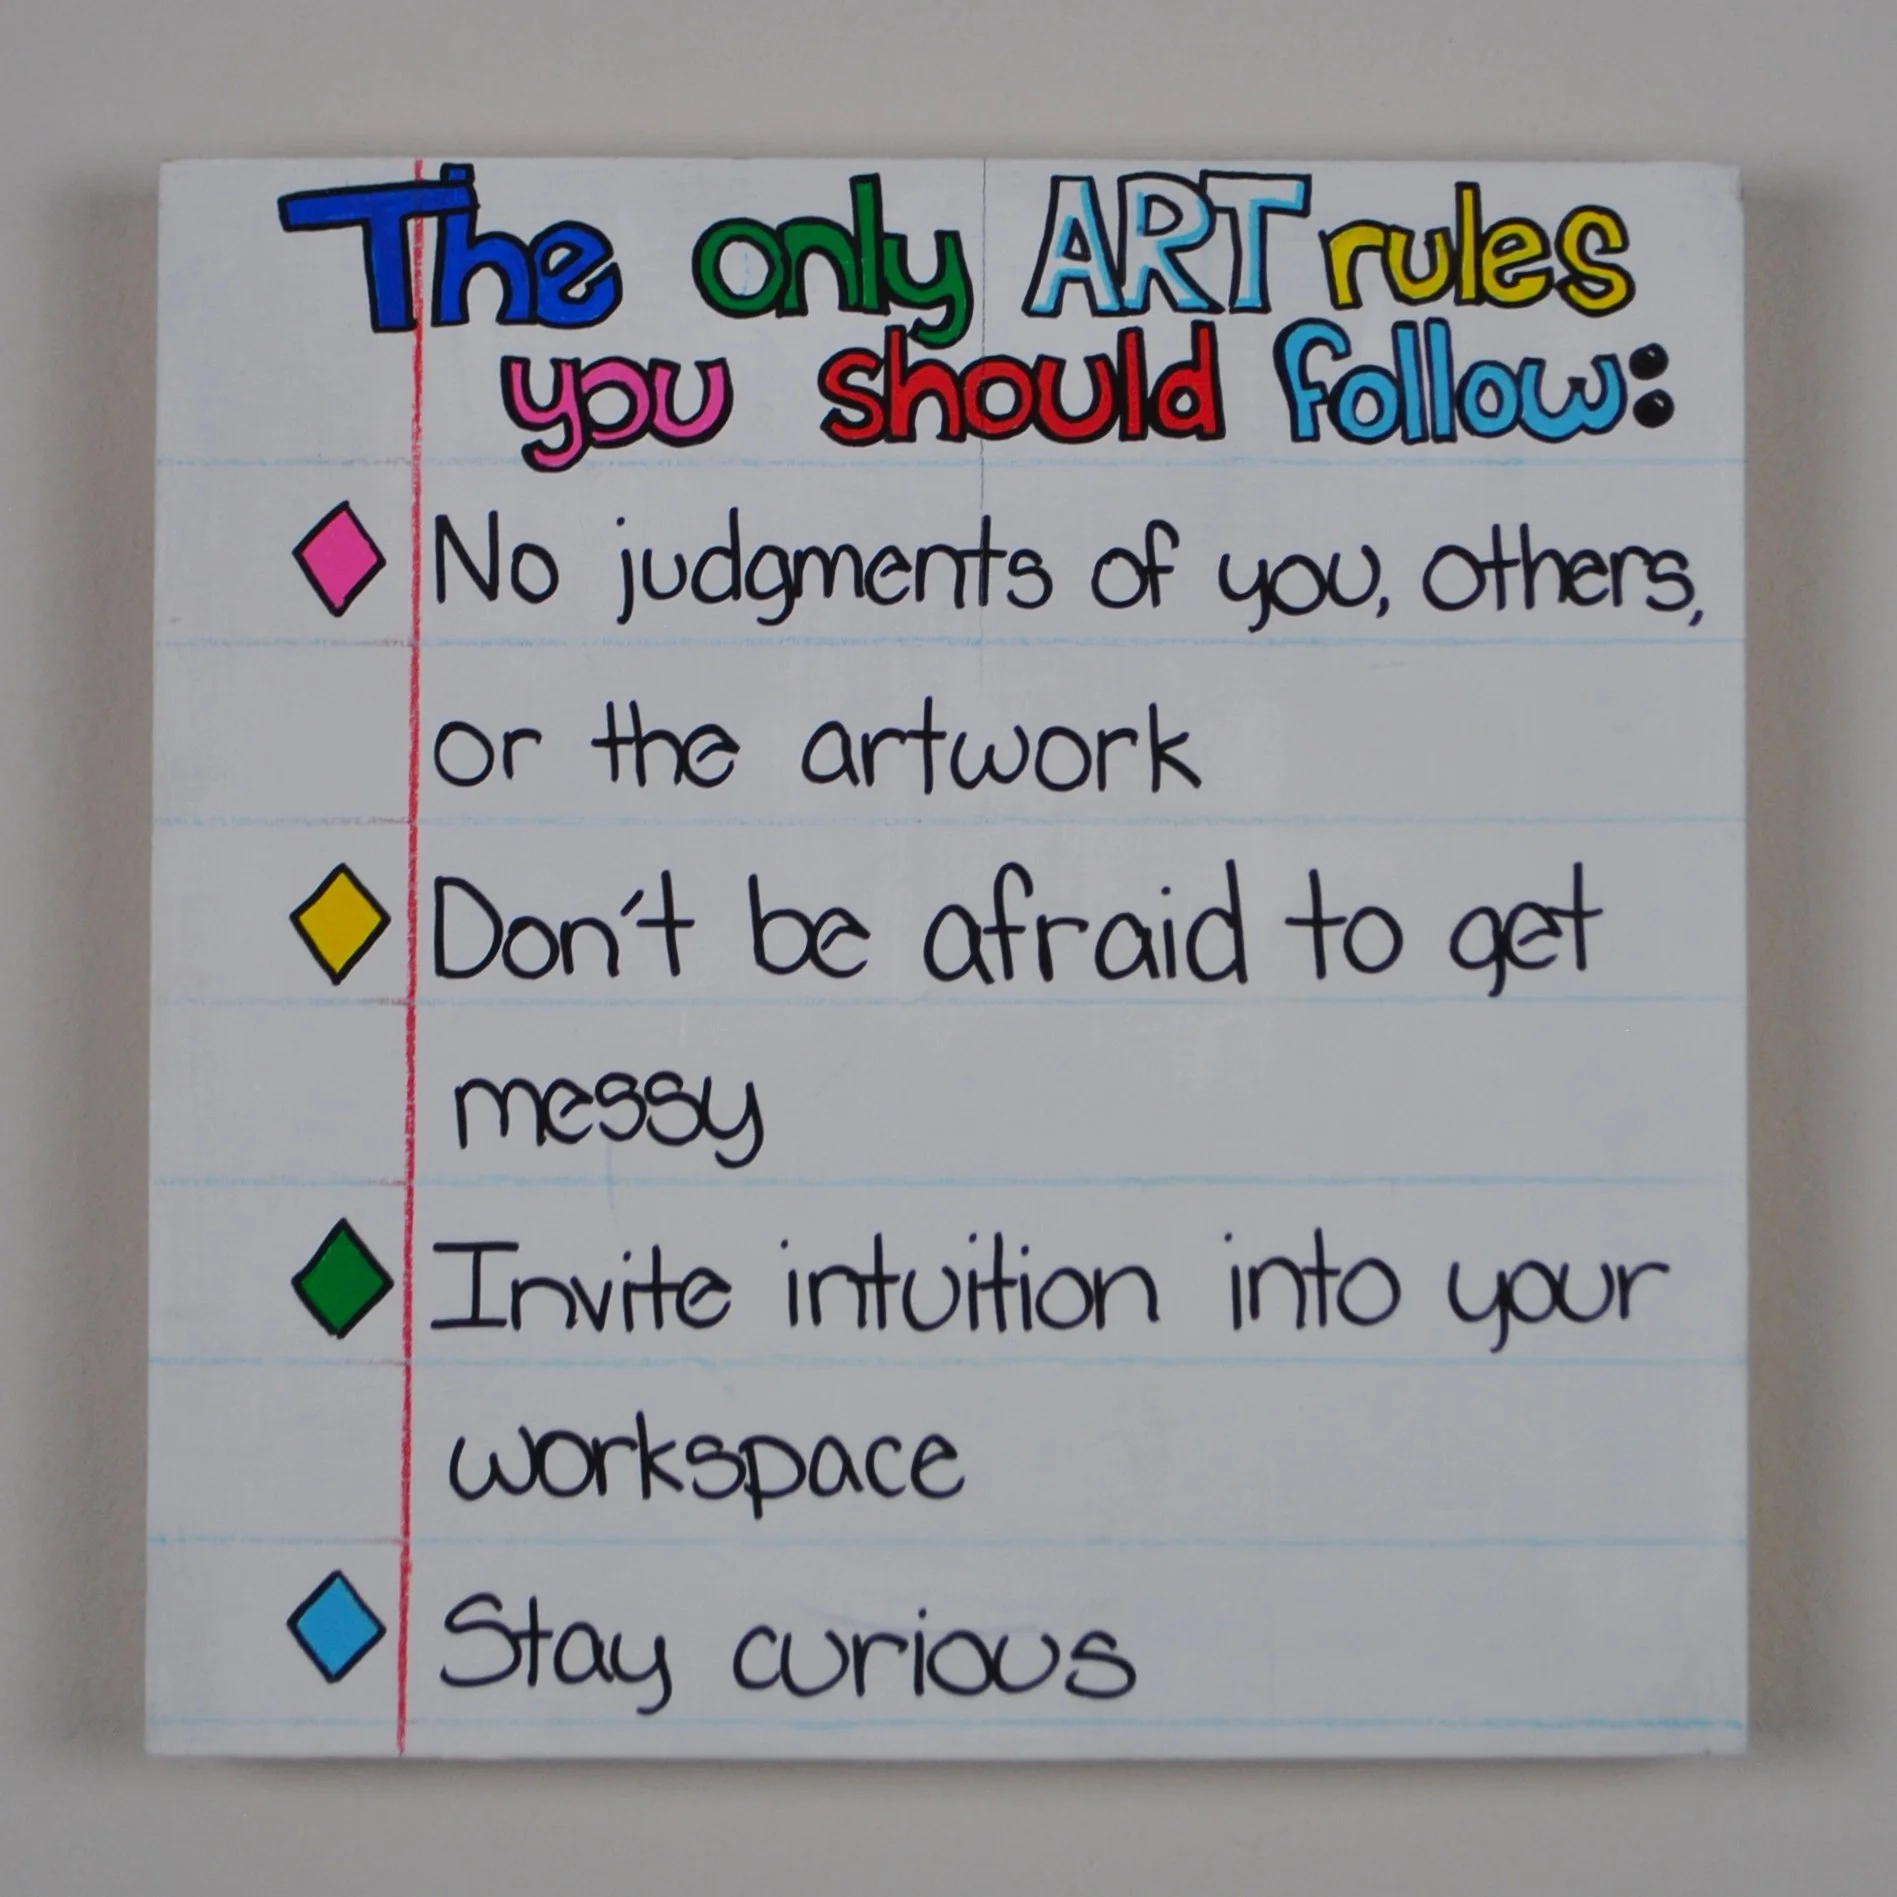 The only ART rules
you should follow:
No judgments of you, others,
or the artwork
Don't be afraid to get
messy
Invite intuition into your
workspace
Stay curious